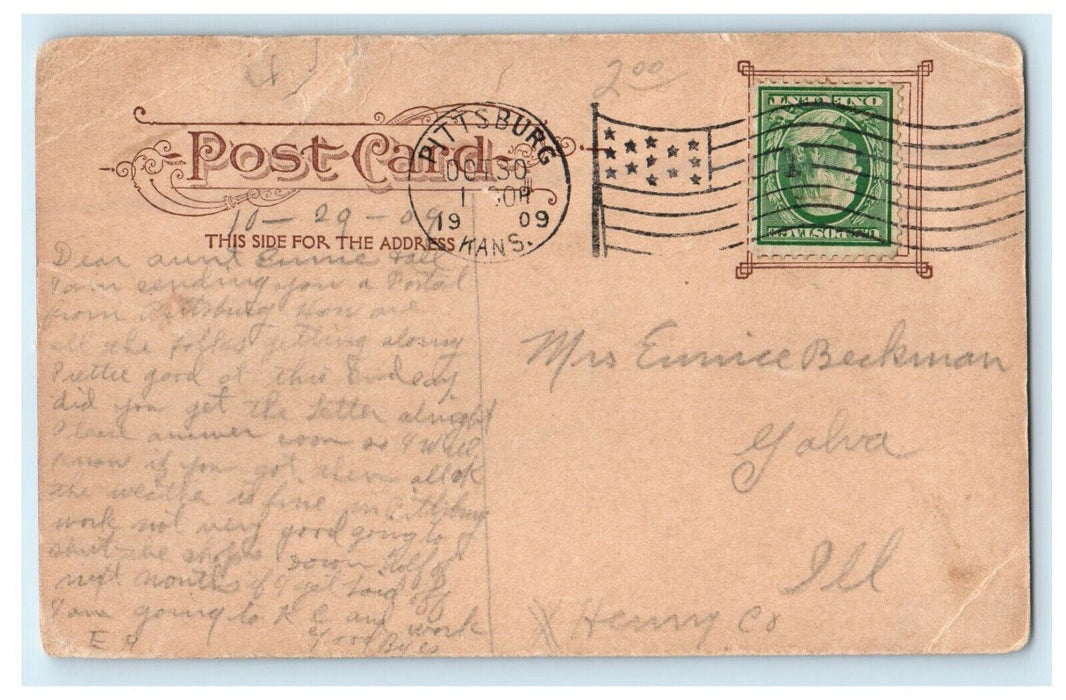 2.00
Post Card
THIS SIDE FOR THE ADDRESS
PITTSBURG
OCT 30
1
19 09
KANS.
ONE CENT
U.S. POSTAGE
10 - 29 - 09
Dear aunt Eunice
I am sending you a Postal
from Pittsburg How are
all the folks getting along
Prettie good at this End
did you get the Letter alright
Please answer soon so I Will
know if you got them all OK
the weather is fine in Pittsburg
work not very good going to
shut the shops down Half of
next months if I get laid off
I am going to K C and work
Good Byes
E H
Mrs Eunice Beckman
Galva
Ill
X Henry Co